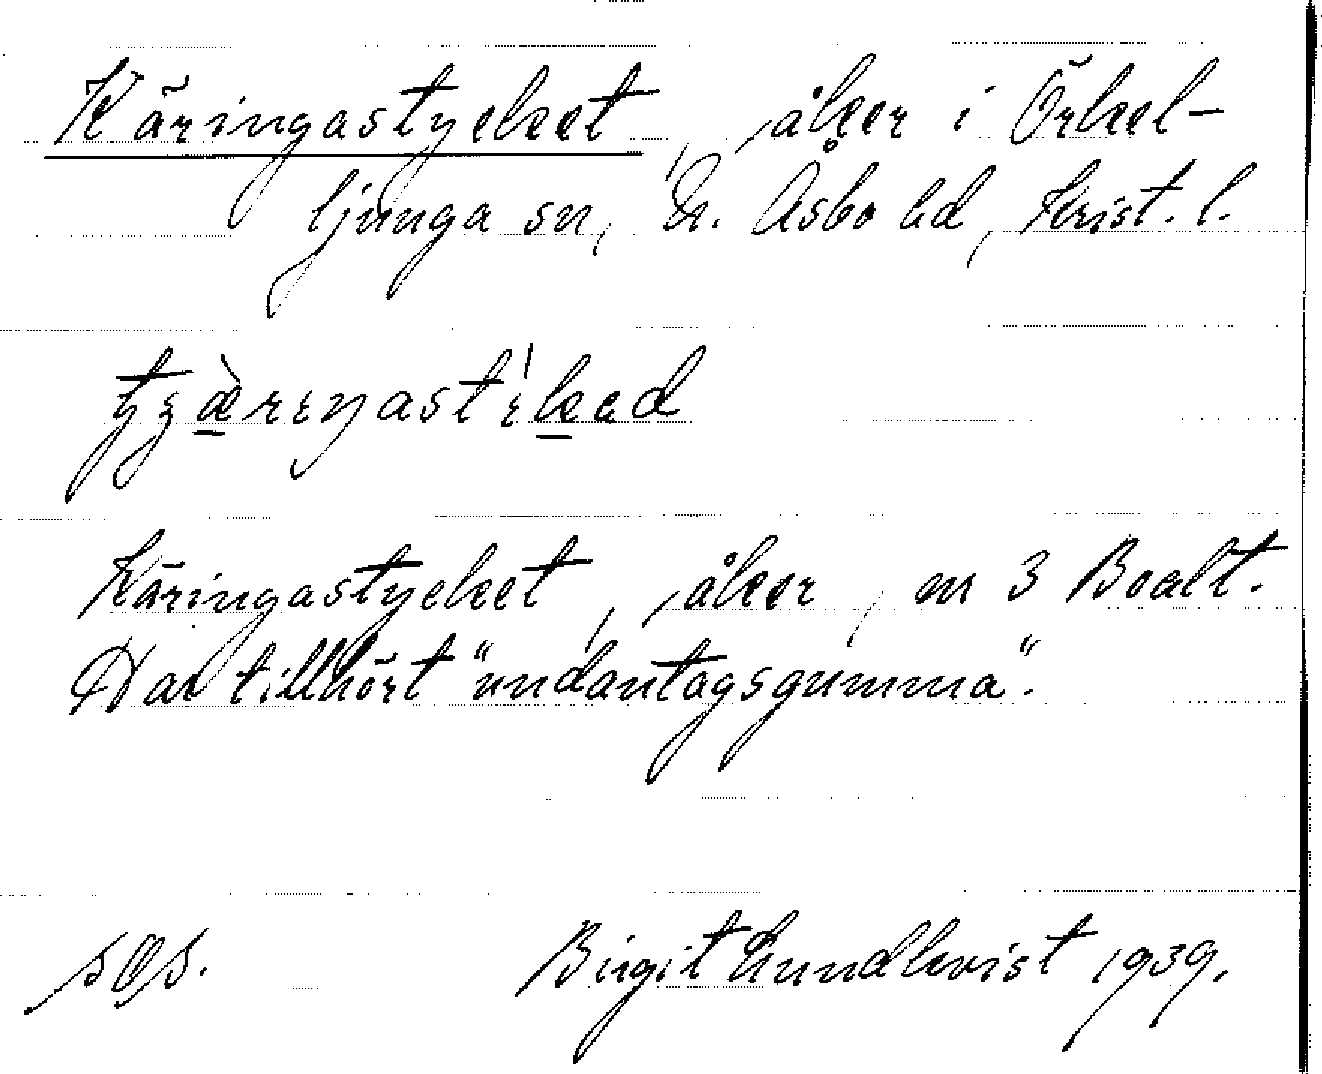 Käringastycket, åker i Örkel-
ljunga sn, N. Åsbo hd, Krist. l.
Käringastycket, åker, m 3 Boalt.
Har tillhört "undantagsgumma".
Birgit Lundkvist 1939.